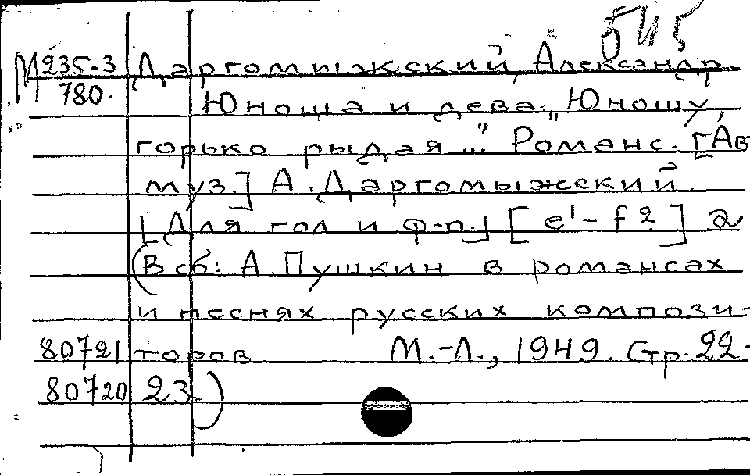 545
М 235-3 Даргомыжский, Александр.
780. Юноша и дева. „Юношу,
горько рыдая..." Романс. [Ав
муз.] А. Даргомыжский.
[Для гол и ф-п.] [e¹-f²] a
(В сб: А Пушкин в романсах
и песнях русских компози-
80721 торов М.-Л., 1949. Стр. 22-
80720 23.)